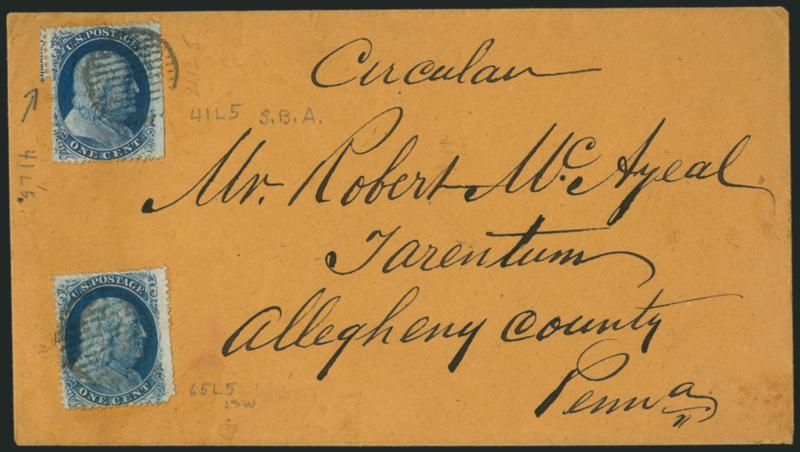 U.S. POSTAGE
ONE CENT
Circular
41L5 S.B.A.
Mr. Robert Mc. Ayeal
Tarentum
Allegheny County
Penna
U.S. POSTAGE
ONE CENT
65L5